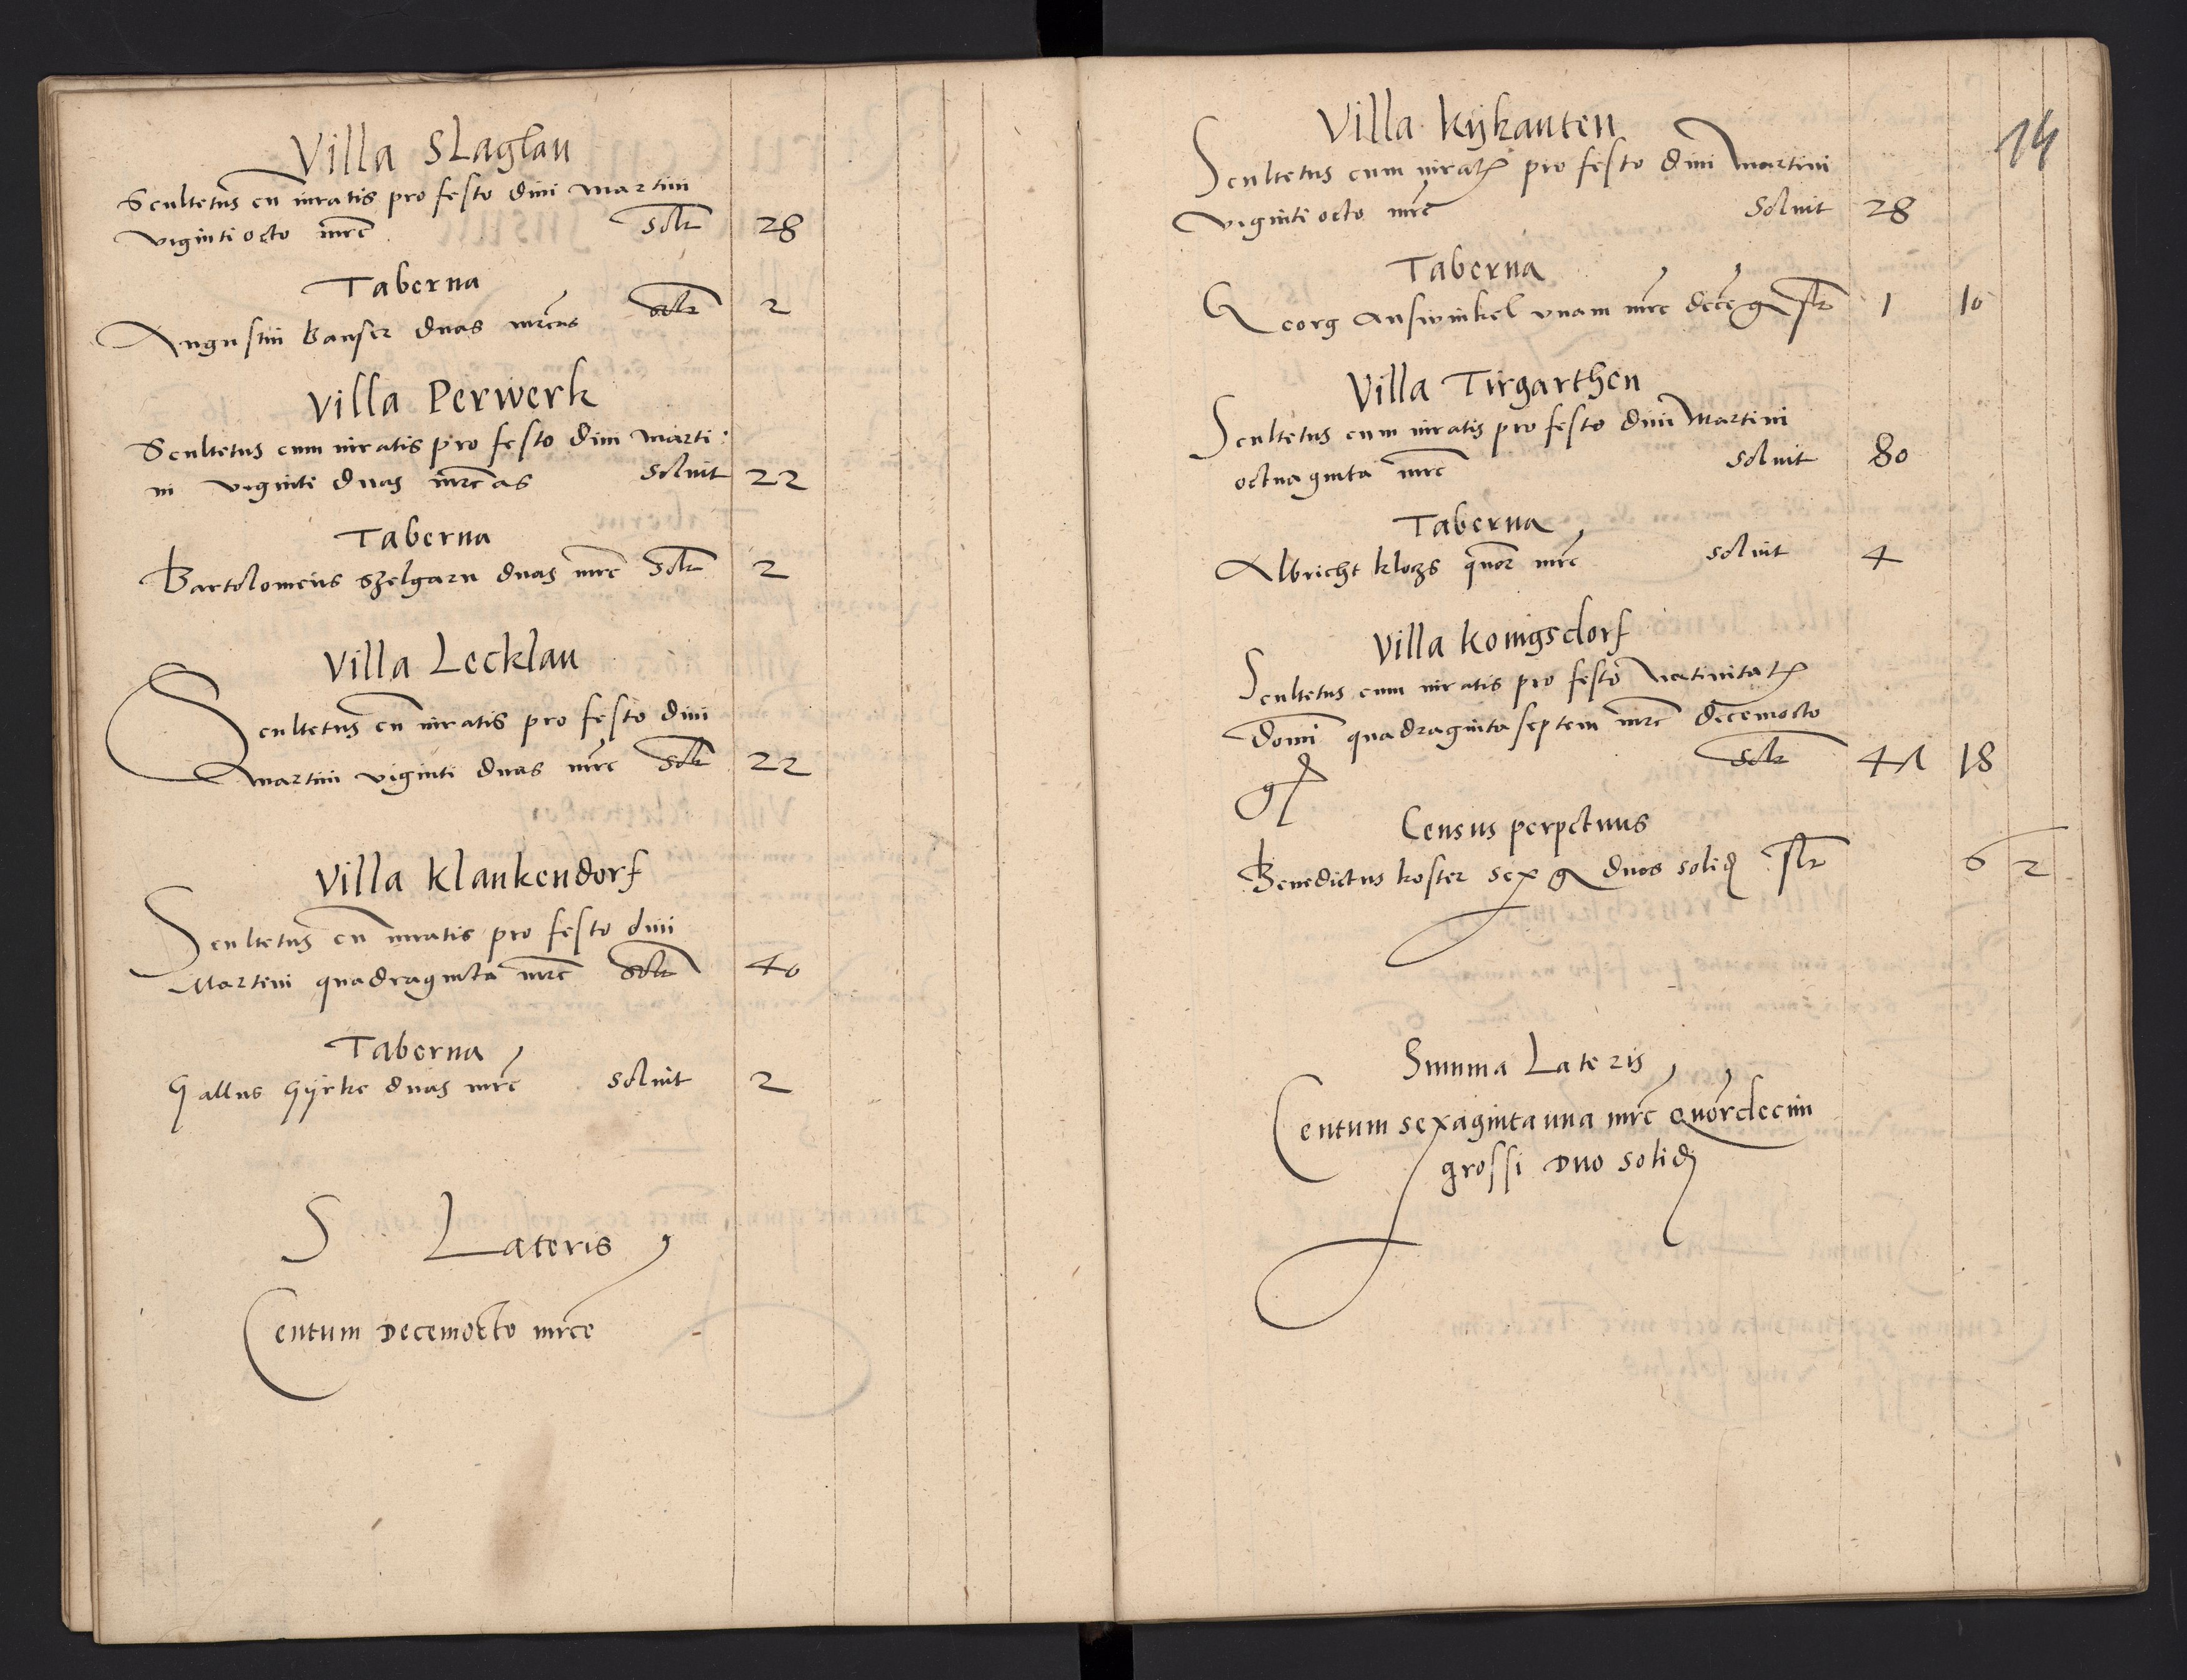 Villa Slaglau
Scultetus cu iuratis pro festo diui martini
viginti octo mrc solt 28
Taberna
Augustin Banser duas mrcas solt 2
Villa Perwerk
Scultetus cum iuratis pro festo diui Marti:
ni viginti duas mrcas soluit 22
Taberna
Bartolomeus szelgarn duas mrc solt 2
Villa Lecklau
Scultetus cu iuratis pro festo diui
martini viginti duas mrc solt 22
Villa Klankendorf
Scultetus cu iuratis pro festo diui
Martini quadraginta mrc solt 40
Taberna
Gallus Gyrke duas mrc soluit 2
S Lateris
Centum Decemocto mrce
14
Villa Kykauten
Scultetus cum iurat pro festo diui Martini
viginti octo mrc Soluit 28
Taberna
Georg Answinkel vnam mrc dece g slt 1 10
Villa Tirgarthen
Scultetus cum iuratis pro festo diui Martini
octuaginta mrc soluit 80
Taberna
Albricht klozs quor mrc soluit 4
Villa Konigsdorf
Scultetus cum iuratis pro festo Natiuitat
Domi quadraginta septem mrc decemocto
g solt 47 18
Census perpetuus
Benedictus koster sex g duos solid slt 6 2
Summa Lateris
Centum sexaginta una mrc Quordecim
grossi Duo solid